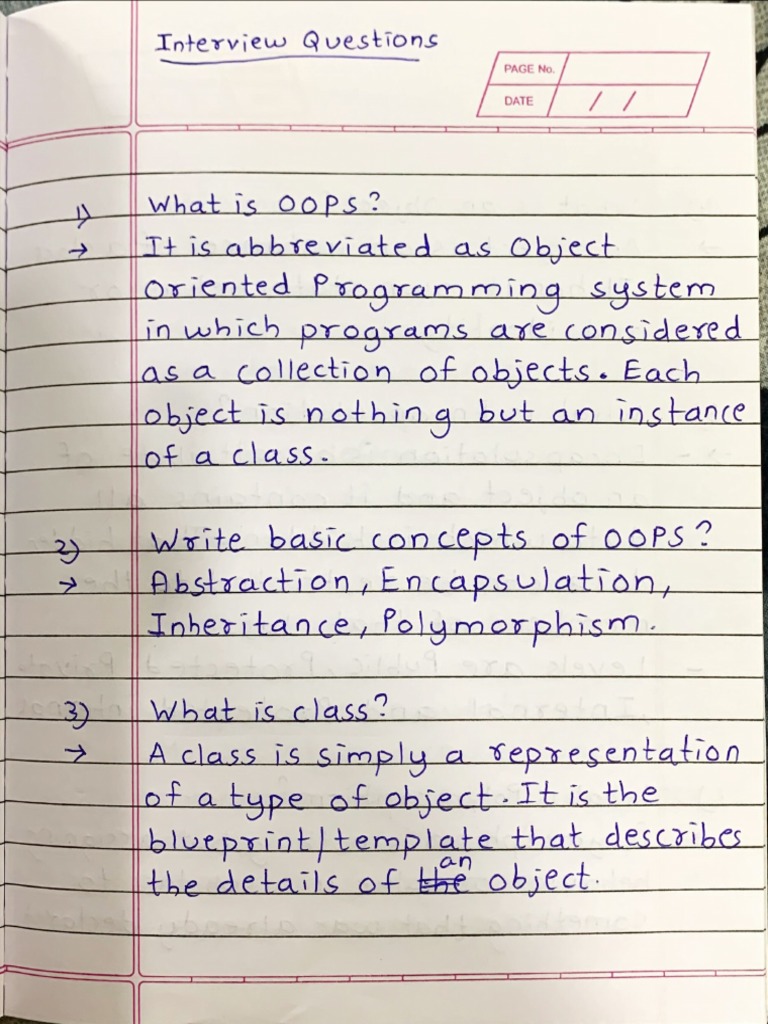 Interview Questions
PAGE No.
DATE / /
1) What is OOPS?
→ It is abbreviated as Object
Oriented Programming system
in which programs are considered
as a collection of objects. Each
object is nothing but an instance
of a class.
2) Write basic concepts of OOPS?
→ Abstraction, Encapsulation,
Inheritance, Polymorphism.
3) What is class?
→ A class is simply a representation
of a type of object. It is the
blueprint/template that describes
an
the details of the object.